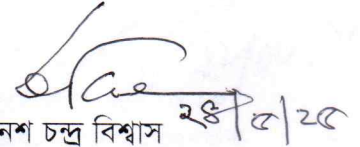 ২৪/৫/২৫
নেশ চন্দ্র বিশ্বাস